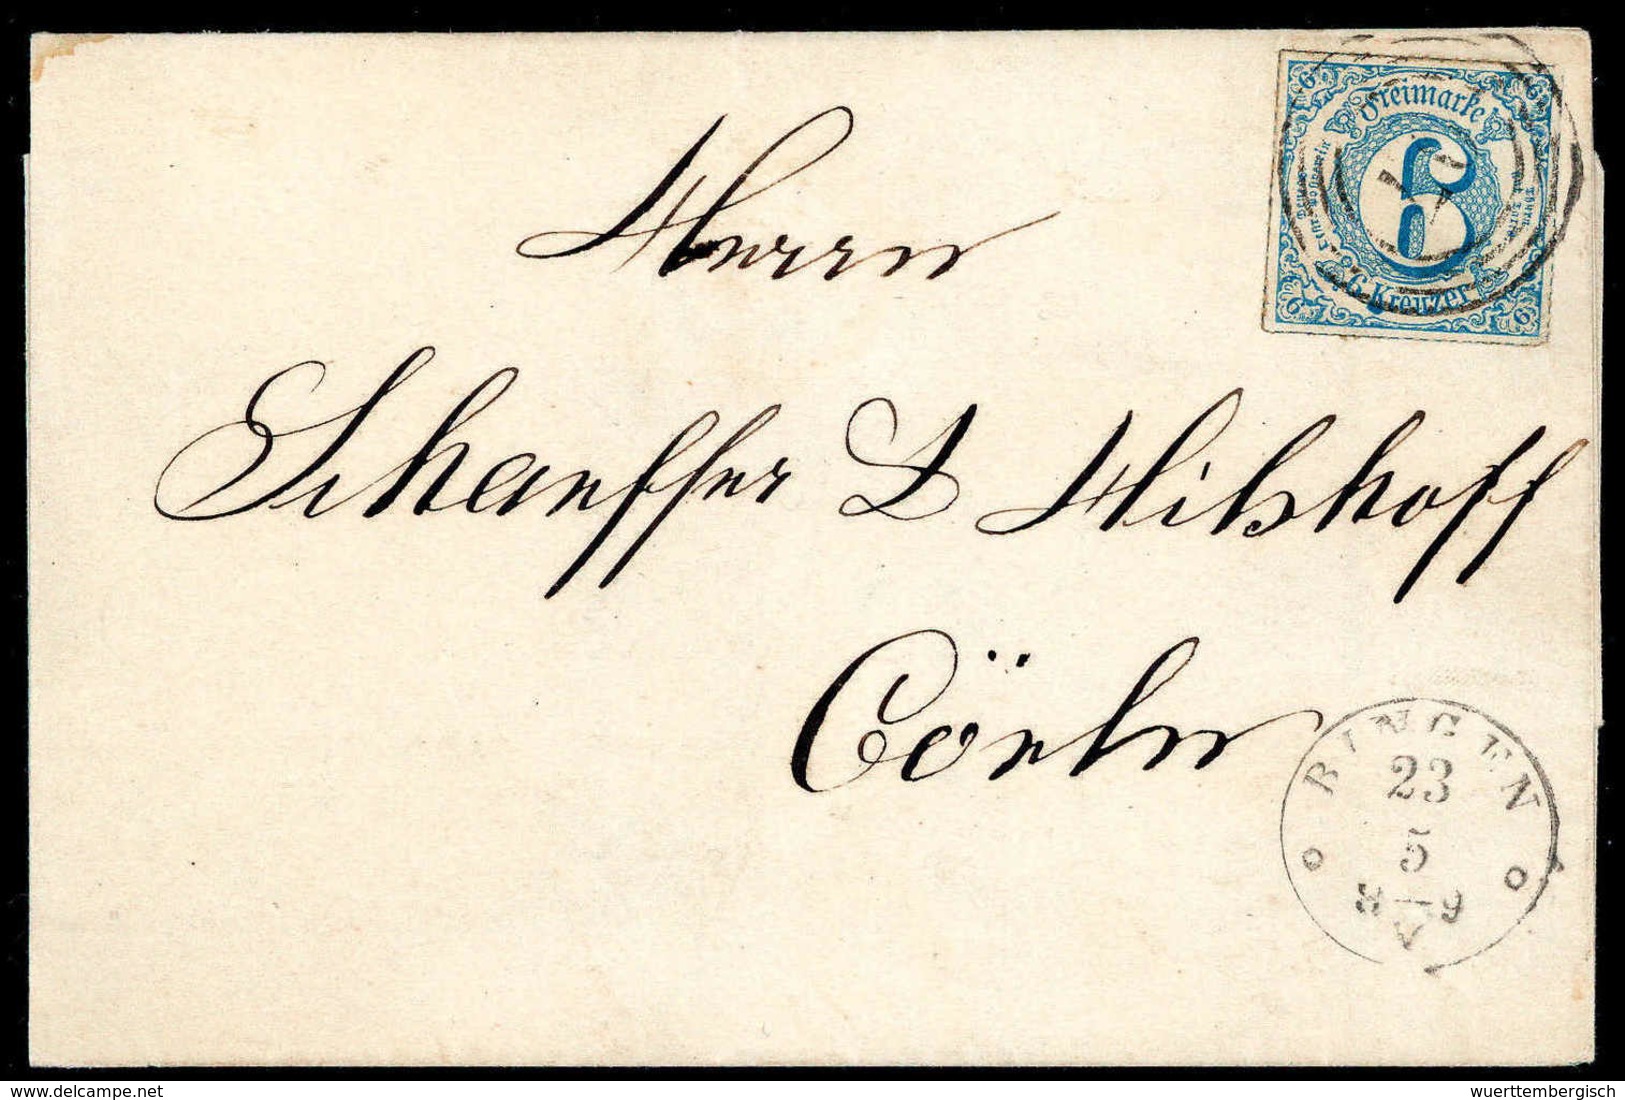 Freimarke
6
6 Kreuzer
6
6
6
6
Herrn
Schaeffer & Hilshoff
Cöeln
BINGEN
23
5
8–9
delcampe.net
wuerttembergisch